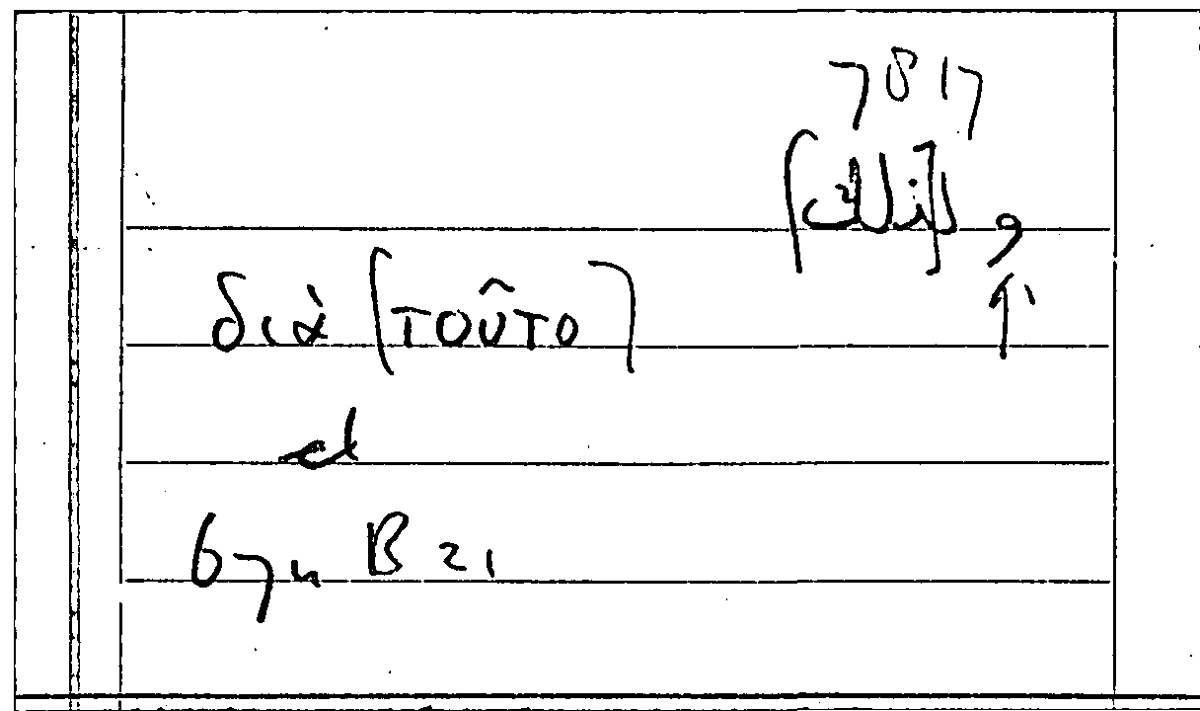 7817
و ل[ذلك]
↑
διὰ [τοῦτο]
67 B 21